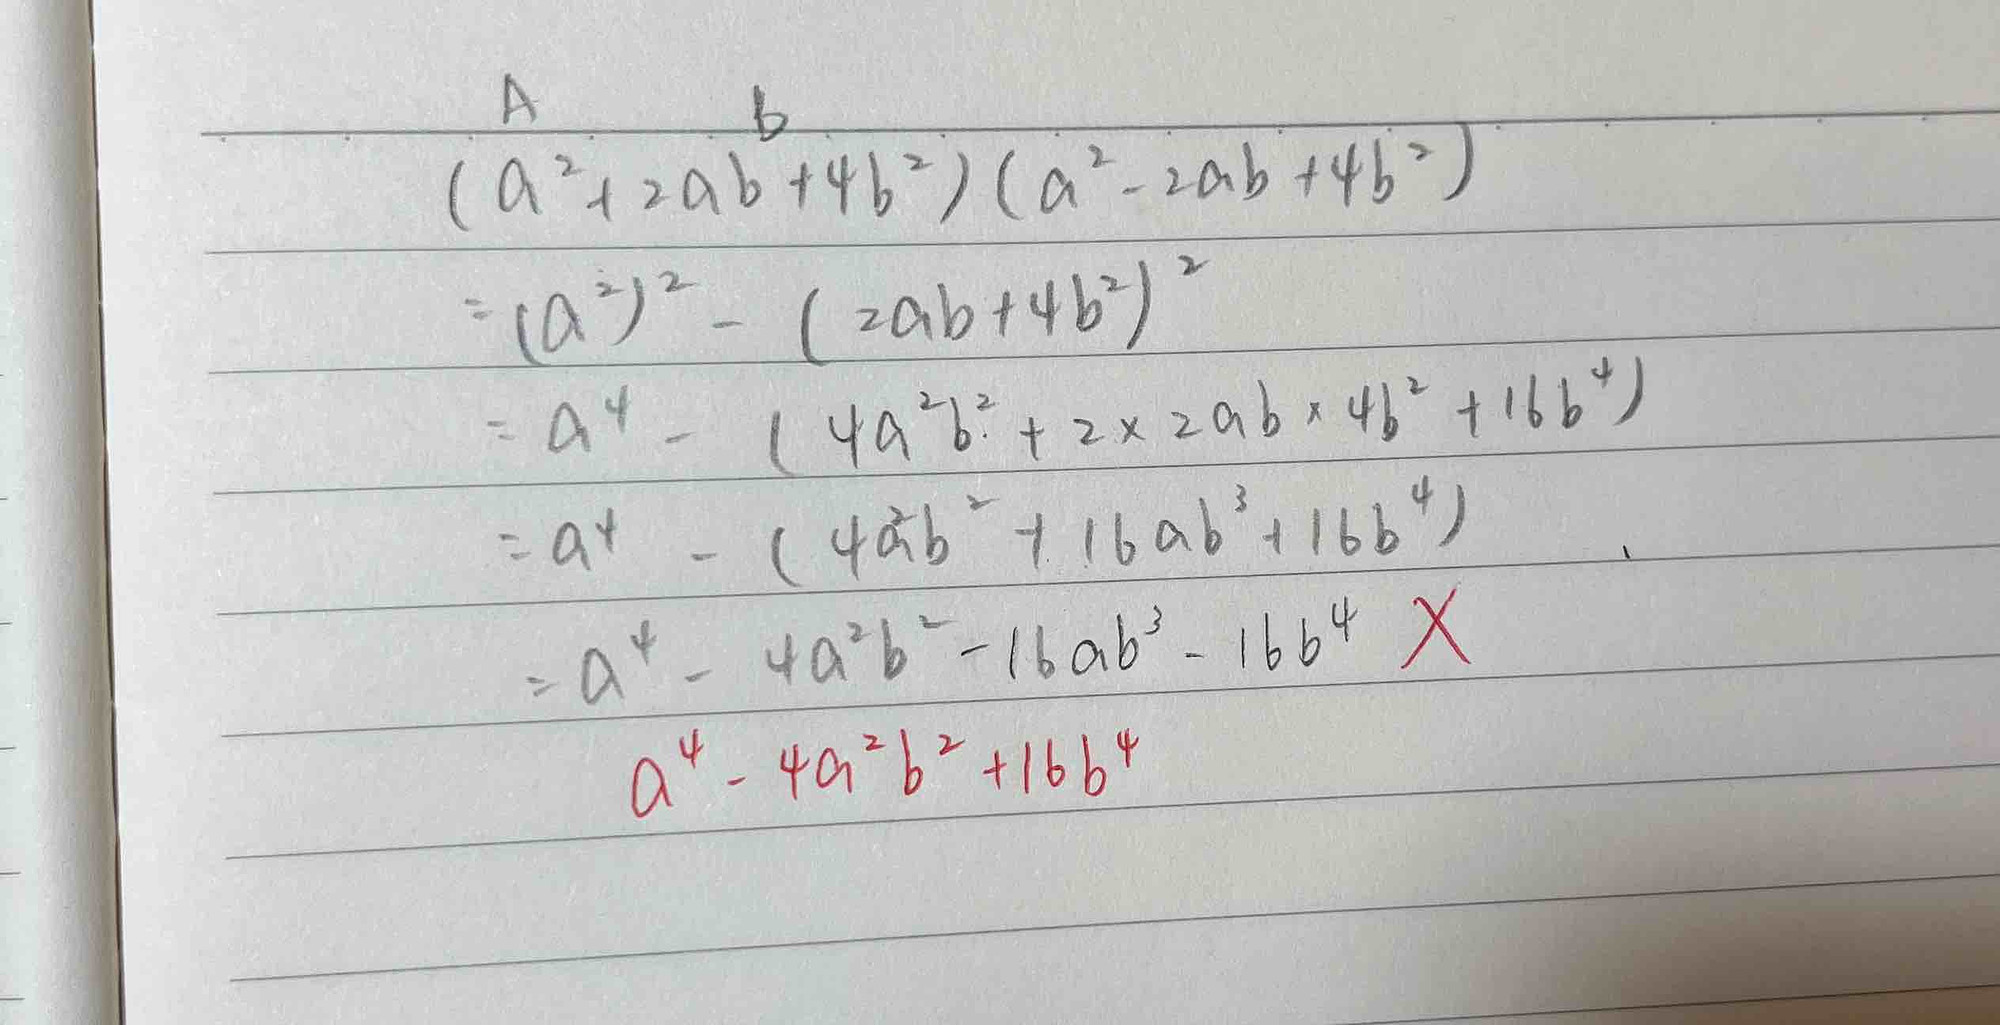 A b
(a²+2ab+4b²)(a²-2ab+4b²)
=(a²)² - (2ab+4b²)²
= a⁴ - (4a²b² + 2×2ab×4b² +16b⁴)
= a⁴ - (4a²b² + 16ab³+16b⁴)
= a⁴ - 4a²b² -16ab³ - 16b⁴ X
a⁴ - 4a²b² +16b⁴